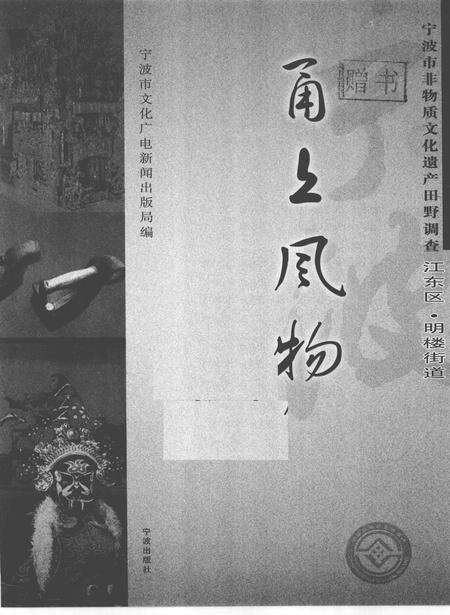 宁波市非物质文化遗产田野调查
江东区·明楼街道
赠书
甬上风物
宁波市文化广电新闻出版局编
宁波出版社